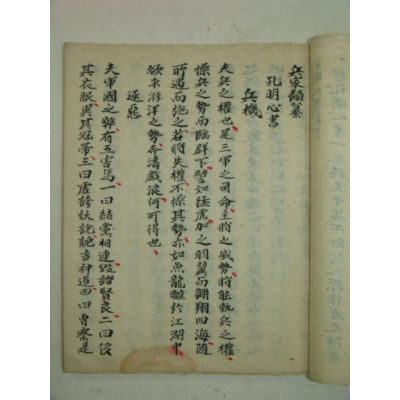 兵家類纂
孔明心書
兵機
夫兵之權也是三軍之司命主將之威勢將能執兵之權
操兵之勢而臨群下譬如猛虎加之羽翼而翱翔四海隨
所遇而施之若將失權不操其勢亦如魚龍離於江湖中
欲求游洋之勢奔濤戲浪何可得也
逐惡
夫軍國之弊有五害焉一曰結黨相連毀譖賢良二曰侈
其衣服異其冠帶三曰虛誇妖訛詭言神道四曰專察是